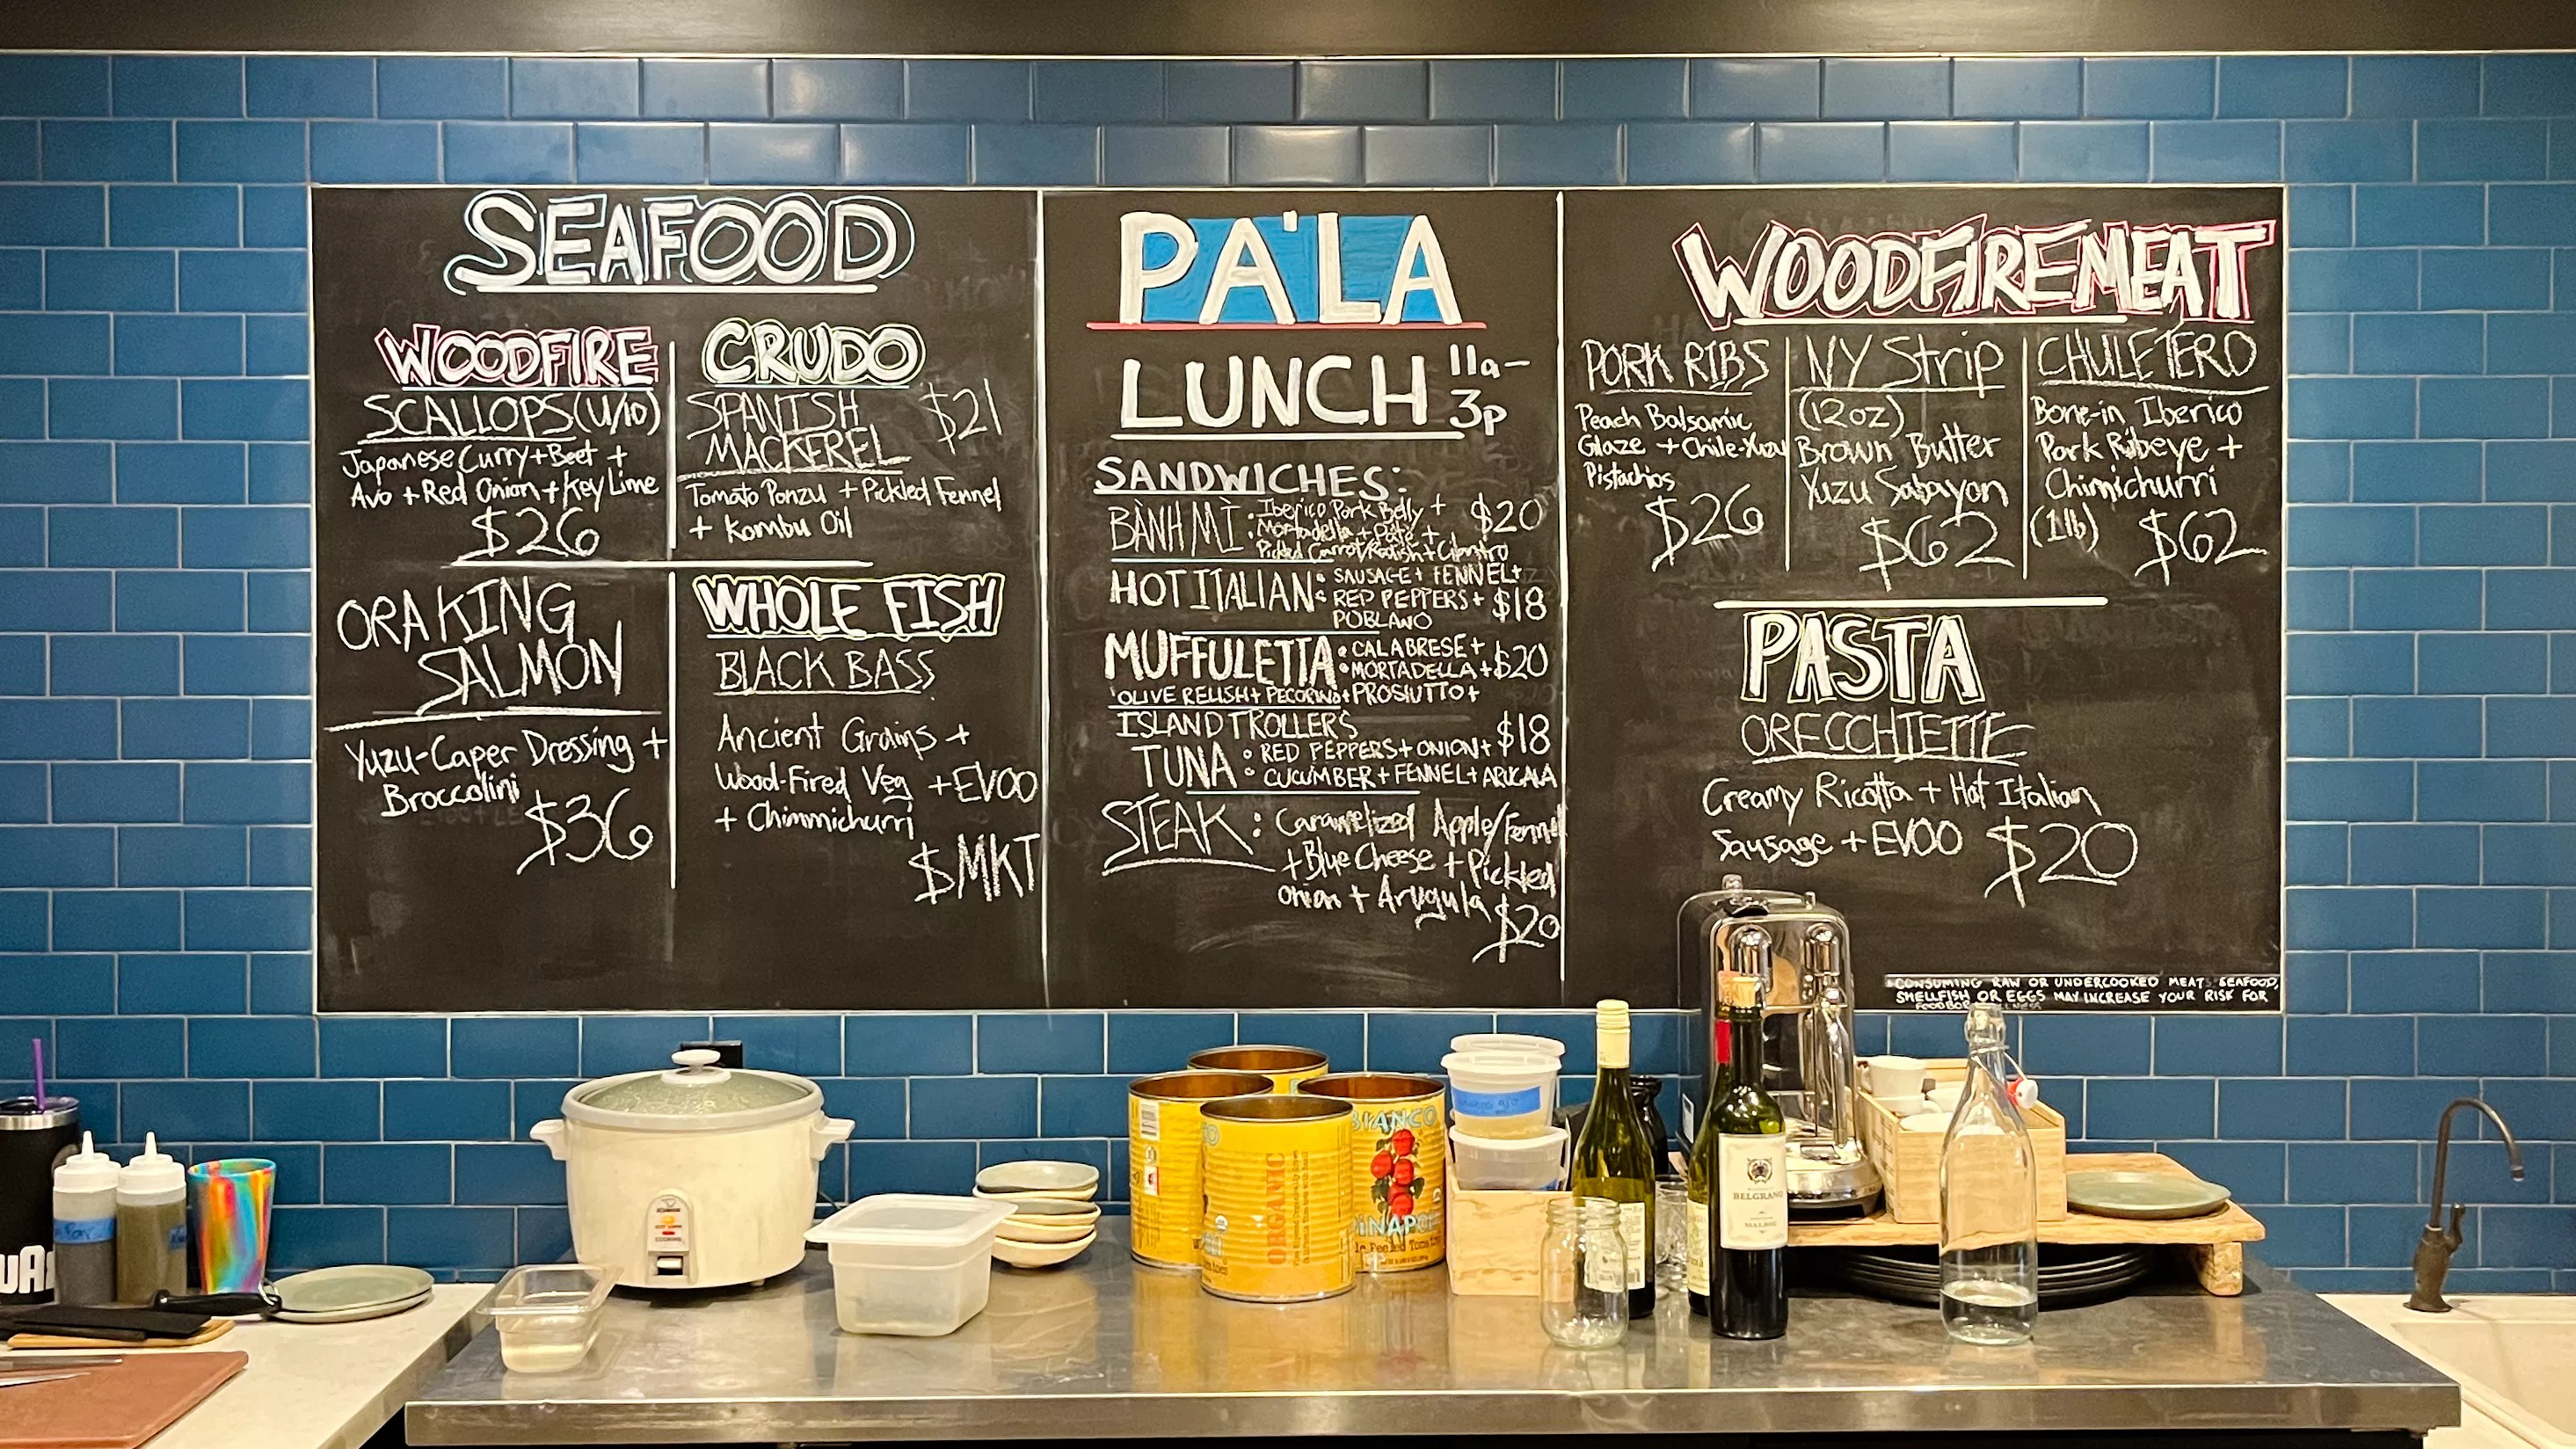 SEAFOOD
WOODFIRE
SCALLOPS (U/10)
Japanese Curry + Beet +
Avo + Red Onion + Key Lime
$26
CRUDO
SPANISH $21
MACKEREL
Tomato Ponzu + Pickled Fennel
+ Kombu Oil
ORA KING
SALMON
Yuzu-Caper Dressing +
Broccolini
$36
WHOLE FISH
BLACK BASS
Ancient Grains +
Wood-Fired Veg + EVOO
+ Chimmichurri
$MKT
PA'LA
LUNCH 11a-
3p
SANDWICHES:
BÀNH MÌ: Iberico Pork Belly + $20
Mortadella + Pâté +
Pickled Carrot/Radish + Cilantro
HOT ITALIAN: SAUSAGE + FENNEL +
RED PEPPERS + $18
POBLANO
MUFFULETTA: CALABRESE +
MORTADELLA + $20
OLIVE RELISH + PECORINO + PROSIUTTO +
ISLAND TROLLERS $18
TUNA: RED PEPPERS + ONION +
CUCUMBER + FENNEL + ARUGALA
STEAK: Caramelized Apple/Fennel
+ Blue Cheese + Pickled
Onion + Arugula
$20
WOODFIRE MEAT
PORK RIBS
Peach Balsamic
Glaze + Chile-Yuzu
Pistachios
$26
NY Strip
(12oz)
Brown Butter
Yuzu Sabayon
$62
CHULETERO
Bone-in Iberico
Pork Ribeye +
Chimichurri
(1lb) $62
PASTA
ORECCHIETTE
Creamy Ricotta + Hot Italian
Sausage + EVOO $20
CONSUMING RAW OR UNDERCOOKED MEATS SEAFOOD,
SHELLFISH OR EGGS MAY INCREASE YOUR RISK FOR
ORGANIC
BIANCO
DINAPOLI
BELGRANO
MALBEC